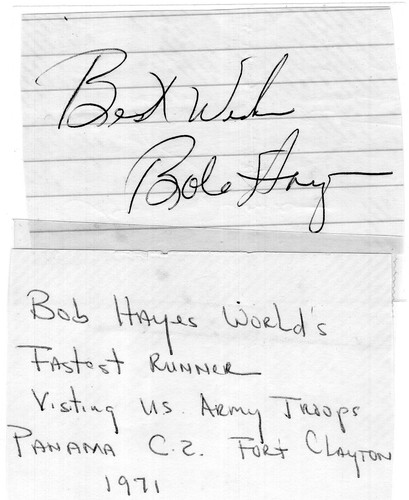 Best Wishes
Bob Hayes
Bob Hayes World's
Fastest Runner
Visting U.S. Army Troops
Panama C.Z. Fort Clayton
1971